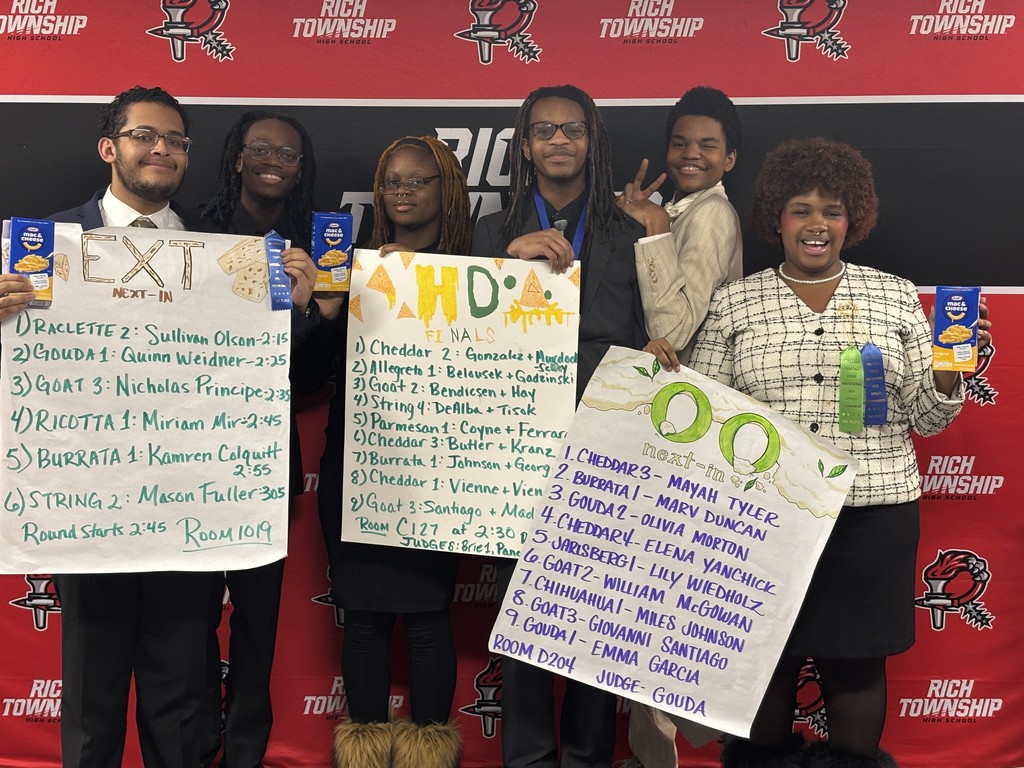 RICH
TOWNSHIP
HIGH SCHOOL
RICH
TOWNSHIP
HIGH SCHOOL
RICH
TOWNSHIP
HIGH SCHOOL
RICH
TOWNSHIP
HIGH SCHOOL
RICH
mac &
cheese
EXT
NEXT-IN
1) RACLETTE 2: Sullivan Olson-2:15
2) GOUDA 1: Quinn Weidner-2:25
3) GOAT 3: Nicholas Principe-2:35
4) RICOTTA 1: Miriam Mir-2:45
5) BURRATA 1: Kamren Colquitt
2:55
6) STRING 2: Mason Fuller 3:05
Round Starts 2:45 ROOM 1019
mac &
cheese
HD
FINALS
1) Cheddar 2: Gonzalez + Murdock
2) Allegreto 1: Belousek + Godzinski
3) Goat 2: Bendicsen + Hay
4) String 4: DeAlba + Tisok
5) Parmesan 1: Coyne + Ferrar
6) Cheddar 3: Butler + Kranz
7) Burrata 1: Johnson + Georg
8) Cheddar 1: Vienne + Vien
9) Goat 3: Santiago + Mad
ROOM C127 at 2:30 P
JUDGES: Brie1, Pane
OO
next-in
1. CHEDDAR 3 - MAYAH TYLER
2. BURRATA 1 - MARV DUNCAN
3. GOUDA 2 - OLIVIA MORTON
4. CHEDDAR 4 - ELENA YANCHICK
5. JARLSBERG 1 - LILY WIEDHOLZ
6. GOAT 2 - WILLIAM McGOWAN
7. CHIHUAHUA 1 - MILES JOHNSON
8. GOAT 3 - GIOVANNI SANTIAGO
9. GOUDA 1 - EMMA GARCIA
ROOM D204 JUDGE - GOUDA
mac &
cheese
RICH
TOWNSHIP
RICH
TOWNSHIP
HIGH SCHOOL
RICH
TOWNSHIP
HIGH SCHOOL